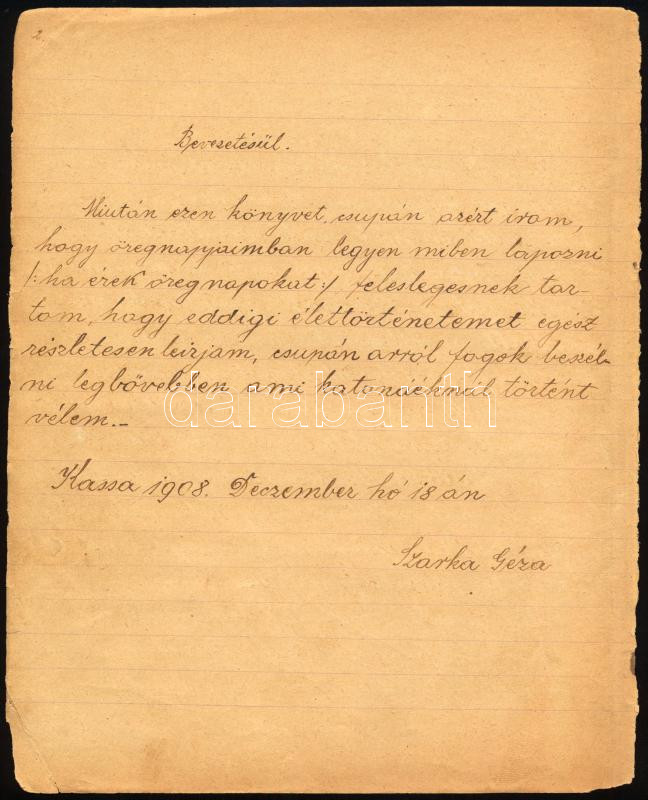 2.
Bevezetésül.
Miután ezen könyvet, csupán azért irom,
hogy öregnapjaimban legyen miben lapozni
/: ha érek öregnapokat :/ feleslegesnek tar-
tom, hogy eddigi élettörténetemet egész
részletesen leirjam, csupán arról fogok beszél-
ni legbővebben ami katonáéknál történt
vélem.-
darabanth
Kassa 1908. Deczember hó 18 án
Szarka Géza